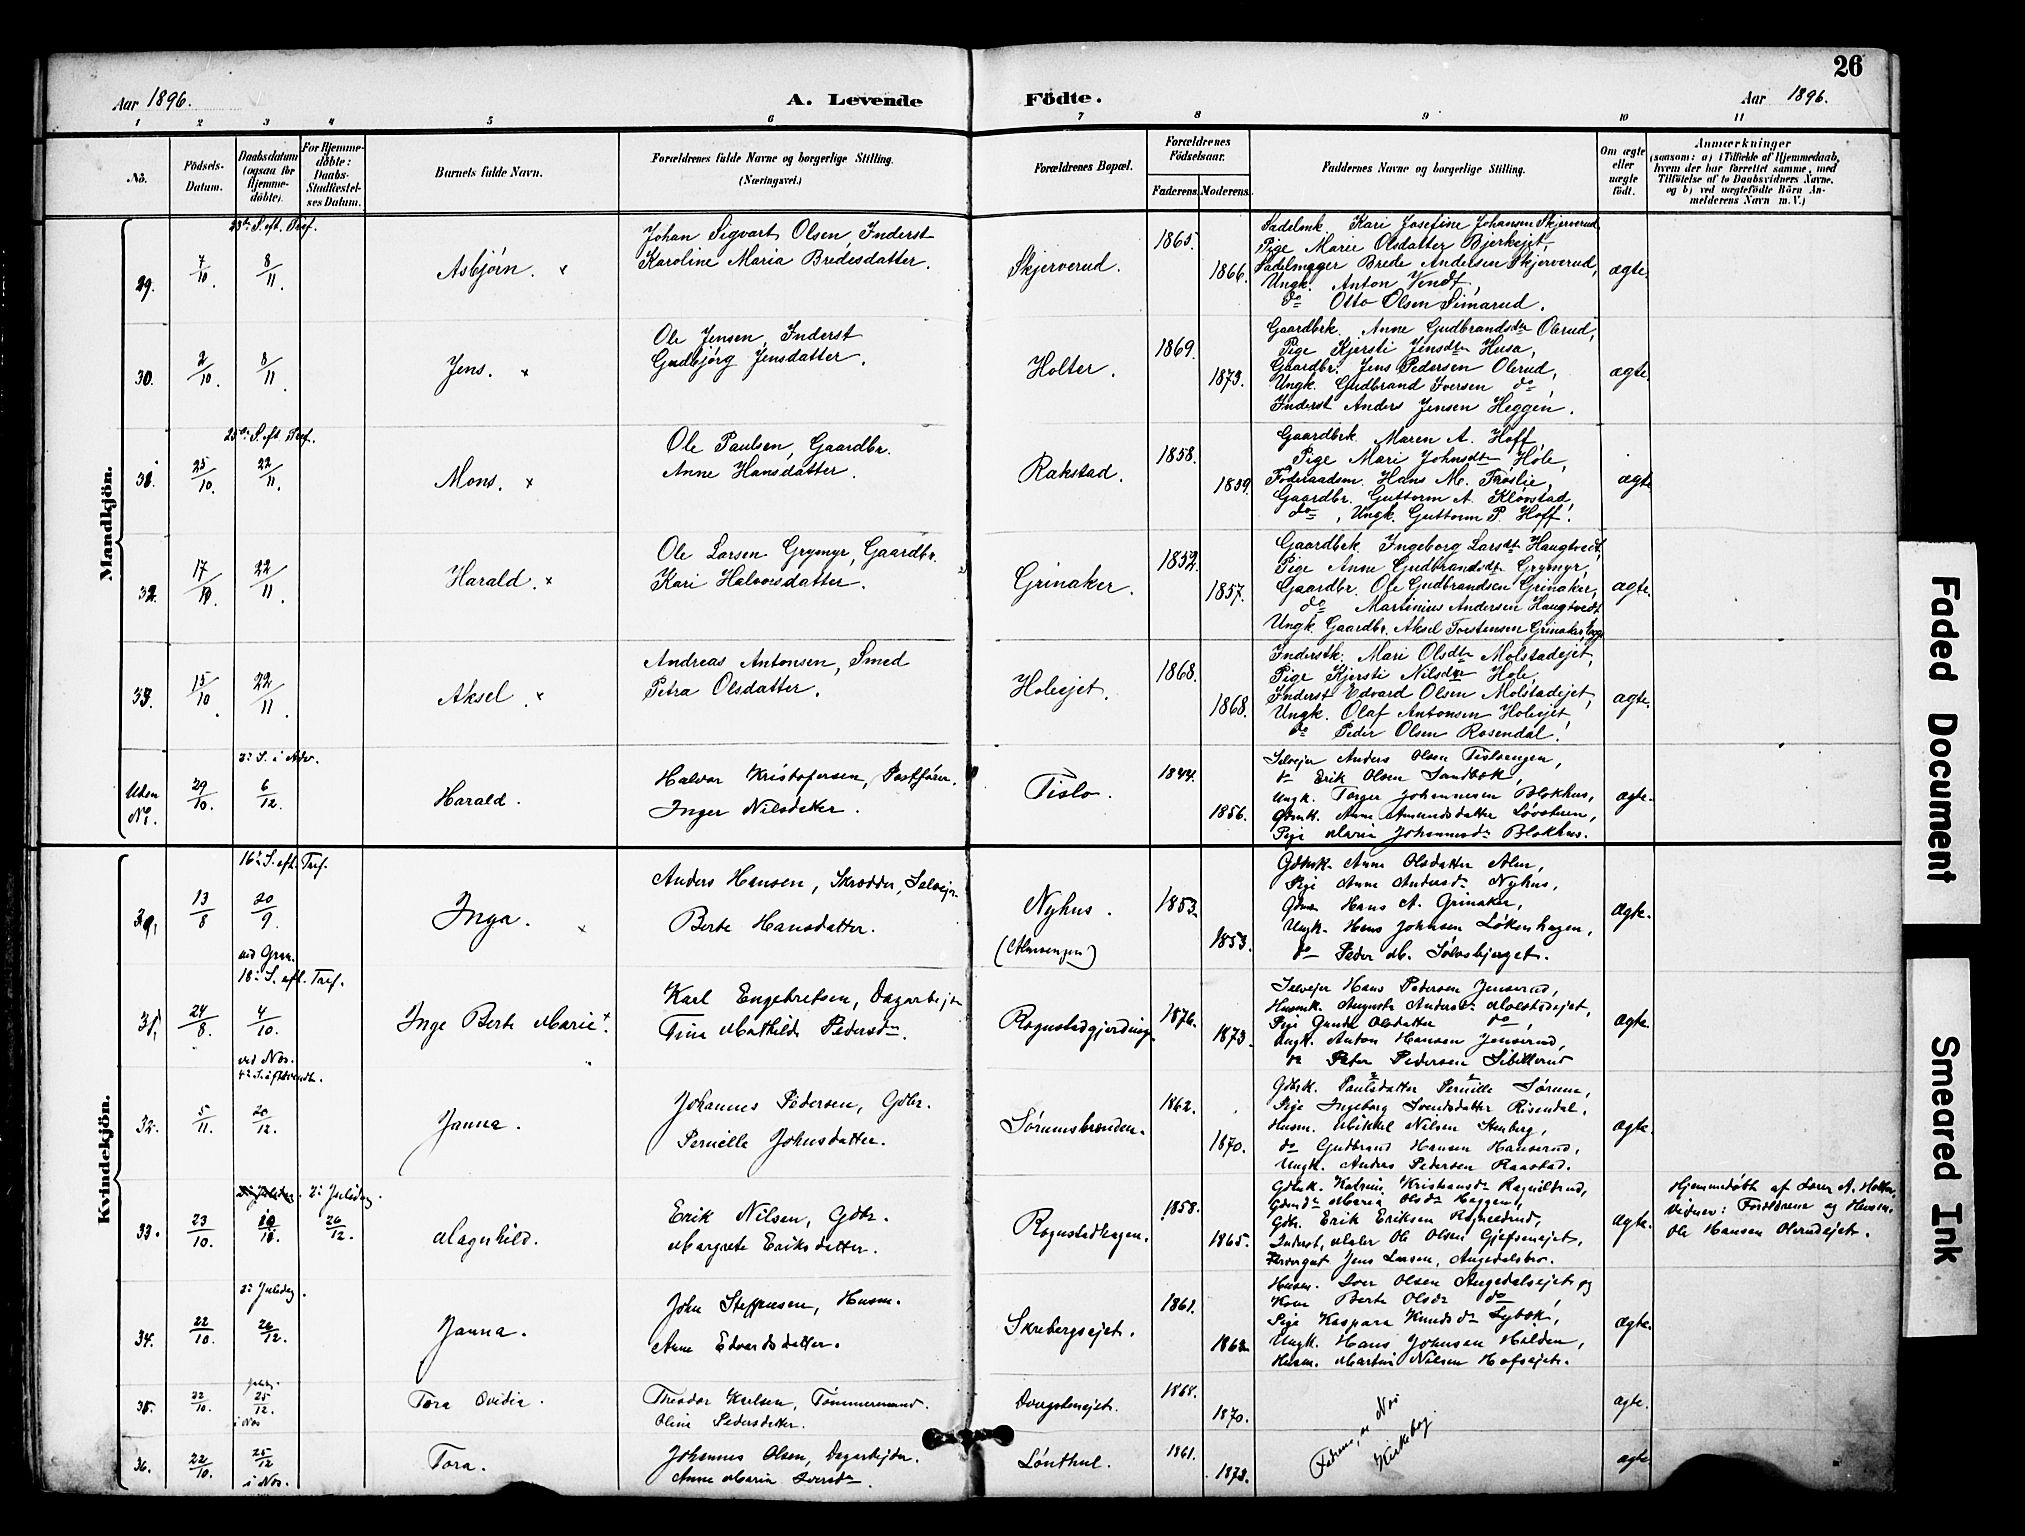 26
Aar 1896.
A. Levende Födte.
Aar 1896.
1 2 3 4 5 6 7 8 9 10 11
No.
Födsels-Datum.
Daabsdatum (ogsaa for Hjemmedöbte).
For Hjemmedöbte: Daabs-Stadfæstelses Datum.
Barnets fulde Navn.
Forældrenes fulde Navne og borgerlige Stilling. (Næringsvei.)
Forældrenes Bopæl.
Forældrenes Födselsaar.
Faderens. Moderens.
Faddernes Navne og borgerlige Stilling.
Om ægte eller uægte födt.
Anmærkninger
(saasom: a) i Tilfælde af Hjemmedaab, hvem der har forrettet samme, med Tilföielse af to Daabsvidners Navne, og b) ved uægtefödte Börn Anmelderens Navn m. V.)
Mandkjön.
23de S. eft. Tref.
29. 7/10. 8/11. Asbjørn. x
Johan Sigvart Olsen, Inderst
Karoline Maria Bredesdatter.
Skjerverud. 1865. 1866.
Sadelmk. Kari Josefine Johansen Skjerverud,
Pige Marie Olsdatter Bjerkejet,
Sadelmager Brede Andersen Skjerverud,
Ungk. Anton Vendt,
do Otto Olsen Simarud.
ægte.
30. 2/10. 8/11. Jens. x
Ole Jensen, Inderst
Gudbjørg Jensdatter.
Holter. 1869. 1873.
Gaardbrk. Anne Gudbrandsdtr Olerud,
Pige Kjersti Jensdtr Husa,
Gaardbr. Jens Pedersen Olerud,
Ungk. Gudbrand Iversen do,
Inderst Anders Jensen Heggen.
ægte.
25de S. eft. Tref.
31. 25/10. 22/11. Mons. x
Ole Paulsen, Gaardbr.
Anne Hansdatter.
Rakstad. 1858. 1859.
Gaardbrk. Maren A. Hoff,
Pige Mari Johnsdtr Hole,
Føderaadsm. Hans M. Frøslie,
Gaardbr. Guttorm A. Kløvstad,
do, Ungk. Guttorm P. Hoff.
ægte
32. 17/10 22/11. Harald. x
Ole Larsen Grymyr, Gaardbr.
Kari Halvorsdatter.
Grinaker. 1852. 1857.
Gaardbrk. Ingeborg Larsdtr Haugtvedt,
Pige Anne Gudbrandsdtr Grymyr,
Gaardbr. Ole Gudbrandsen Grinaker,
do Martinius Andersen Haugtvedt
Ungk. Gaardbr. Aksel Torstensen Grinaker
ægte.
33. 15/10. 22/11. Aksel. x
Andreas Antonsen, Smed
Petra Olsdatter.
Holesjet. 1868. 1868.
Inderstk. Mari Olsdtr Molstadejet,
Pige Kjersti Nilsdtr Hole,
Inderst Edvard Olsen Molstadejet,
Ungk. Olaf Antonsen Holesjet,
do Peder Olsen Rosendal.
ægte.
2: S. i Adv.
Uden No. 29/10. 6/12. Harald.
Halvor Kristofersen, Postfører.
Inger Nilsdatter.
Tislo. 1844. 1856.
Selvejer Anders Olsen Tisloengen,
do Erik Olsen Sandbæk,
Ungk. Torger Johannesen Blokhus,
Gdmk. Anne Amundsdatter Løvstuen,
Pige Maria Johannesdr Blokhus.
ægte.
Kvindekjön.
16: S. eft. Tref.
13/8 20/9. Inga. x
ved Gran.
Anders Hansen, Skrædder, Selvejer
Berte Hansdatter.
Nyhus.
(Almsengen)
1853. 1853.
Gdbrk. Anne Olsdatter Alm,
Pige Anne Andersdr Nyhus,
Gdm Hans A. Grinaker,
Ungk. Hans Johnsen Løkenhagen,
do Peder M. Sølvsbjerget.
ægte.
18: S. eft. Tref.
31, 24/8. 4/10. Inge Berte Marie. +
ved Nes.
Karl Engebretsen, Dagarbejder
Trine Mathilde Pedersdr.
Rognstadgjerdingen. 1876. 1873.
Selvejer Hans Pedersen Jenserud,
Husmk. Auguste Andersdr Molstadejet,
Pige Gunda Olsdatter do,
Ungk. Anton Hansen Jenserud,
do Peter Pedersen Sibillerud
ægte.
4: S. i Advendt.
32. 5/11. 20/12. Janna.
Johannes Pedersen, Gdbr.
Pernille Johnsdatter.
Sørumsbrænden. 1862. 1870.
Gdbrk. Paulsdatter Pernille Sørum,
Pige Ingeborg Svendsdatter Risendal,
Husm. Mikkel Nilsen Stenberg,
do Gudbrand Hansen Hanserud,
Ungk. Anders Pedersen Raastad.
ægte.
2: Juledag.
33. 23/10. 26/12. Magnhild.
Erik Nilsen, Gdbr.
Margrete Eriksdatter.
Rognstadhagen. 1858. 1865.
Gdbrk. Katrine Kristiansdr Rognildrud,
Gdmdr Maria Olsdr Heggen,
Gdbr. Erik Eriksen Rognildrud,
Inderst, Maler Ole Olsen Gjefsenejet,
Jens Larsen, Augedalsbro.
ægte.
Hjemmedøbt af Lærer A. Holter,
Vidner: Forældrene og Husm.
Ole Hansen Olerudejet.
2: Juledag.
34. 22/10. 26/12. Janna.
John Steffensen, Husm.
Anne Edvardsdatter.
Skrebergsejet. 1861. 1862.
Husm. Iver Olsen Augedalsejet og
Kone Berte Olsdr do,
Pige Kaspara Knudsdr Lybæk,
Ungk. Hans Johnsen Halden,
Husm. Martin Nilsen Hofsejet.
ægte.
35. 22/10. 25/12. i Nes
Tora Ovidia.
Theodor Karlsen, Tømmermand.
Oline Pedersdatter.
Dvergstenejet. 1868. 1870.
Faddrene, se Nes Kirkebog.
ægte.
36. 22/10. 25/12 i Nes.
Tora.
Johannes Olsen, Dagarbejder.
Anne Maria Iversdr
Lønthul. 1861. 1873.
ægte